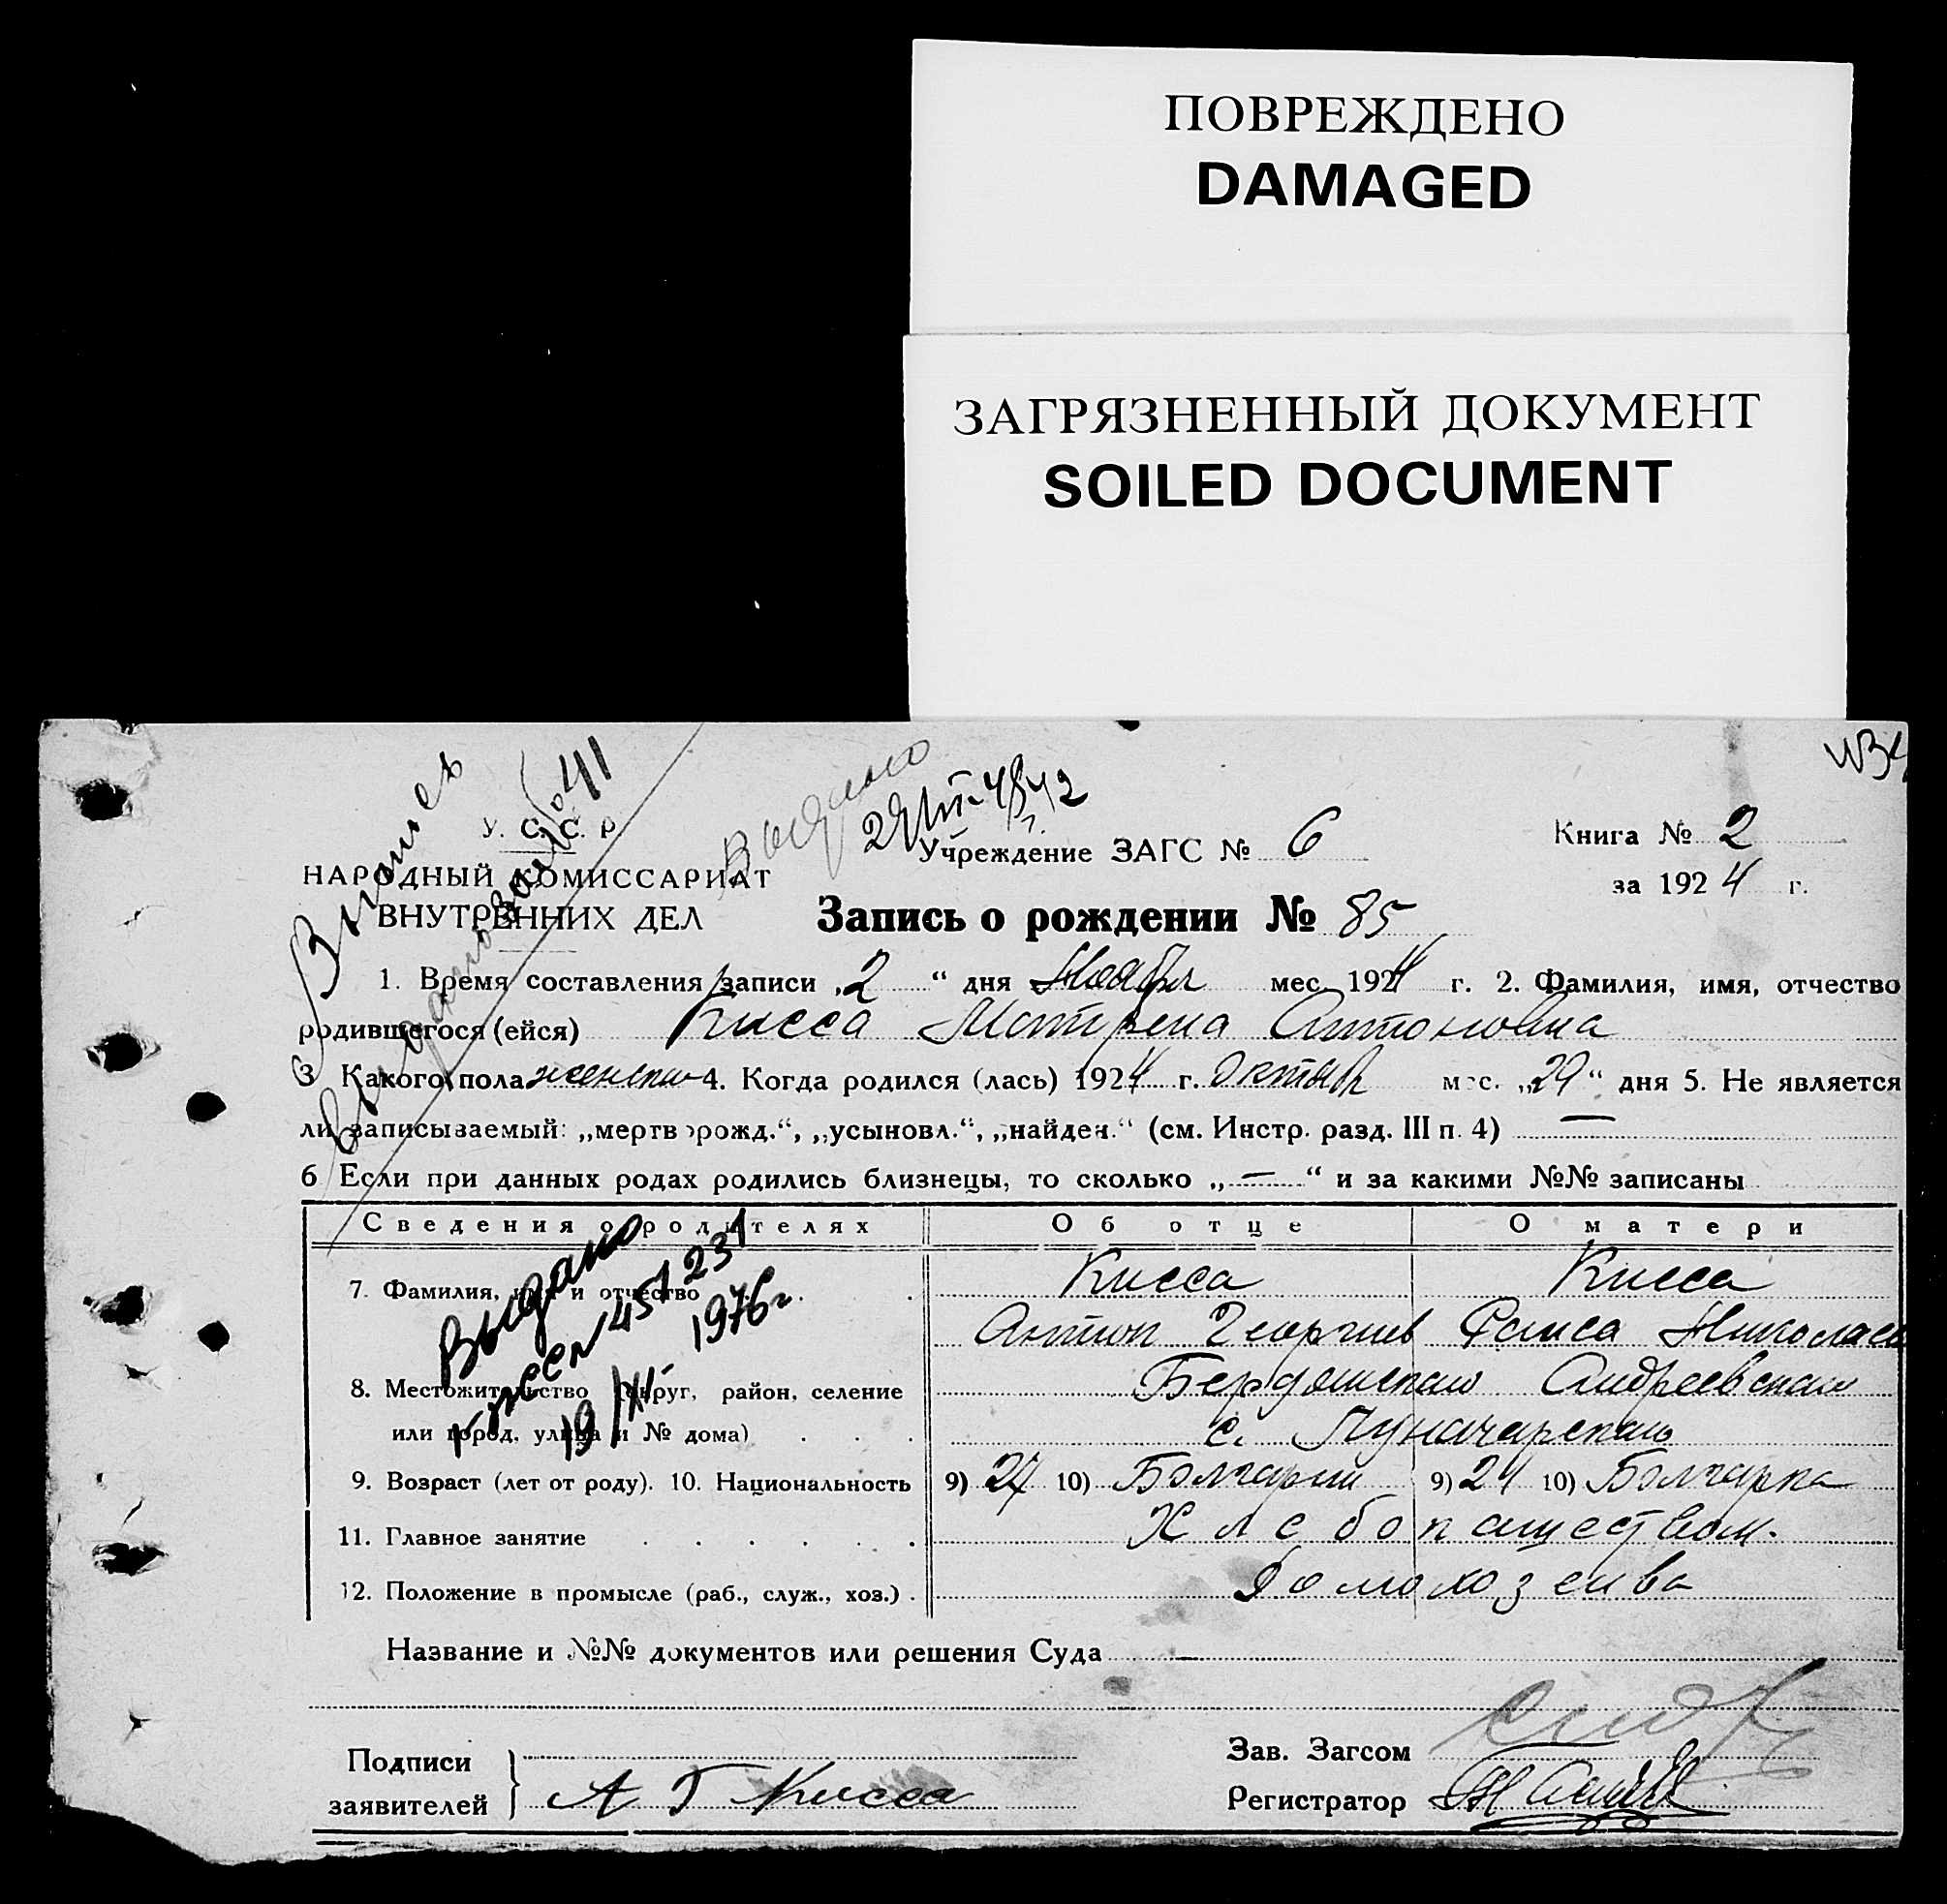 ПОВРЕЖДЕНО
DAMAGED
ЗАГРЯЗНЕННЫЙ ДОКУМЕНТ
SOILED DOCUMENT
У. С. С. Р.
НАРОДНЫЙ КОМИССАРИАТ
ВНУТРЕННИХ ДЕЛ
Выдано
Учреждение ЗАГС № 6
Книга № 2
за 1924 г.
Запись о рождении № 85
1. Время составления записи „2“ дня Ноября мес. 1924 г. 2. Фамилия, имя, отчество
родившегося (ейся) Кисса Матрена Антоновна
3 Какого пола женским 4. Когда родился (лась) 1924 г. Октябр мес. „29“ дня 5. Не является
ли записываемый: „мертворожд.“, „усыновл.“, „найден.“ (см. Инстр. разд. III п. 4) —
6 Если при данных родах родились близнецы, то сколько „—“ и за какими №№ записаны
Сведения о родителях Об отце О матери
7. Фамилия, имя и отчество Кисса Кисса
Антон Георгиев Раиса Николаев
8. Местожительство (округ, район, селение Бердянском Андреевском
или город, улица и № дома) с. Луначарском
9. Возраст (лет от роду). 10. Национальность 9) 27 10) Болгарин 9) 24 10) Болгарка
11. Главное занятие Хлебопашеством.
12. Положение в промысле (раб., служ., хоз.) Домохозяева
Выдано
19/XI- 1976г
Название и №№ документов или решения Суда —
Подписи
заявителей
А Г Кисса
Зав. Загсом
Регистратор